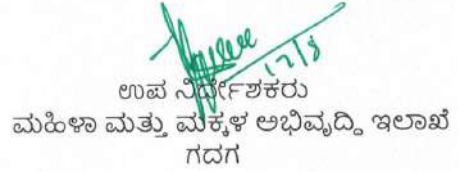 17/8
ಉಪ ನಿರ್ದೇಶಕರು
ಮಹಿಳಾ ಮತ್ತು ಮಕ್ಕಳ ಅಭಿವೃದ್ಧಿ ಇಲಾಖೆ
ಗದಗ